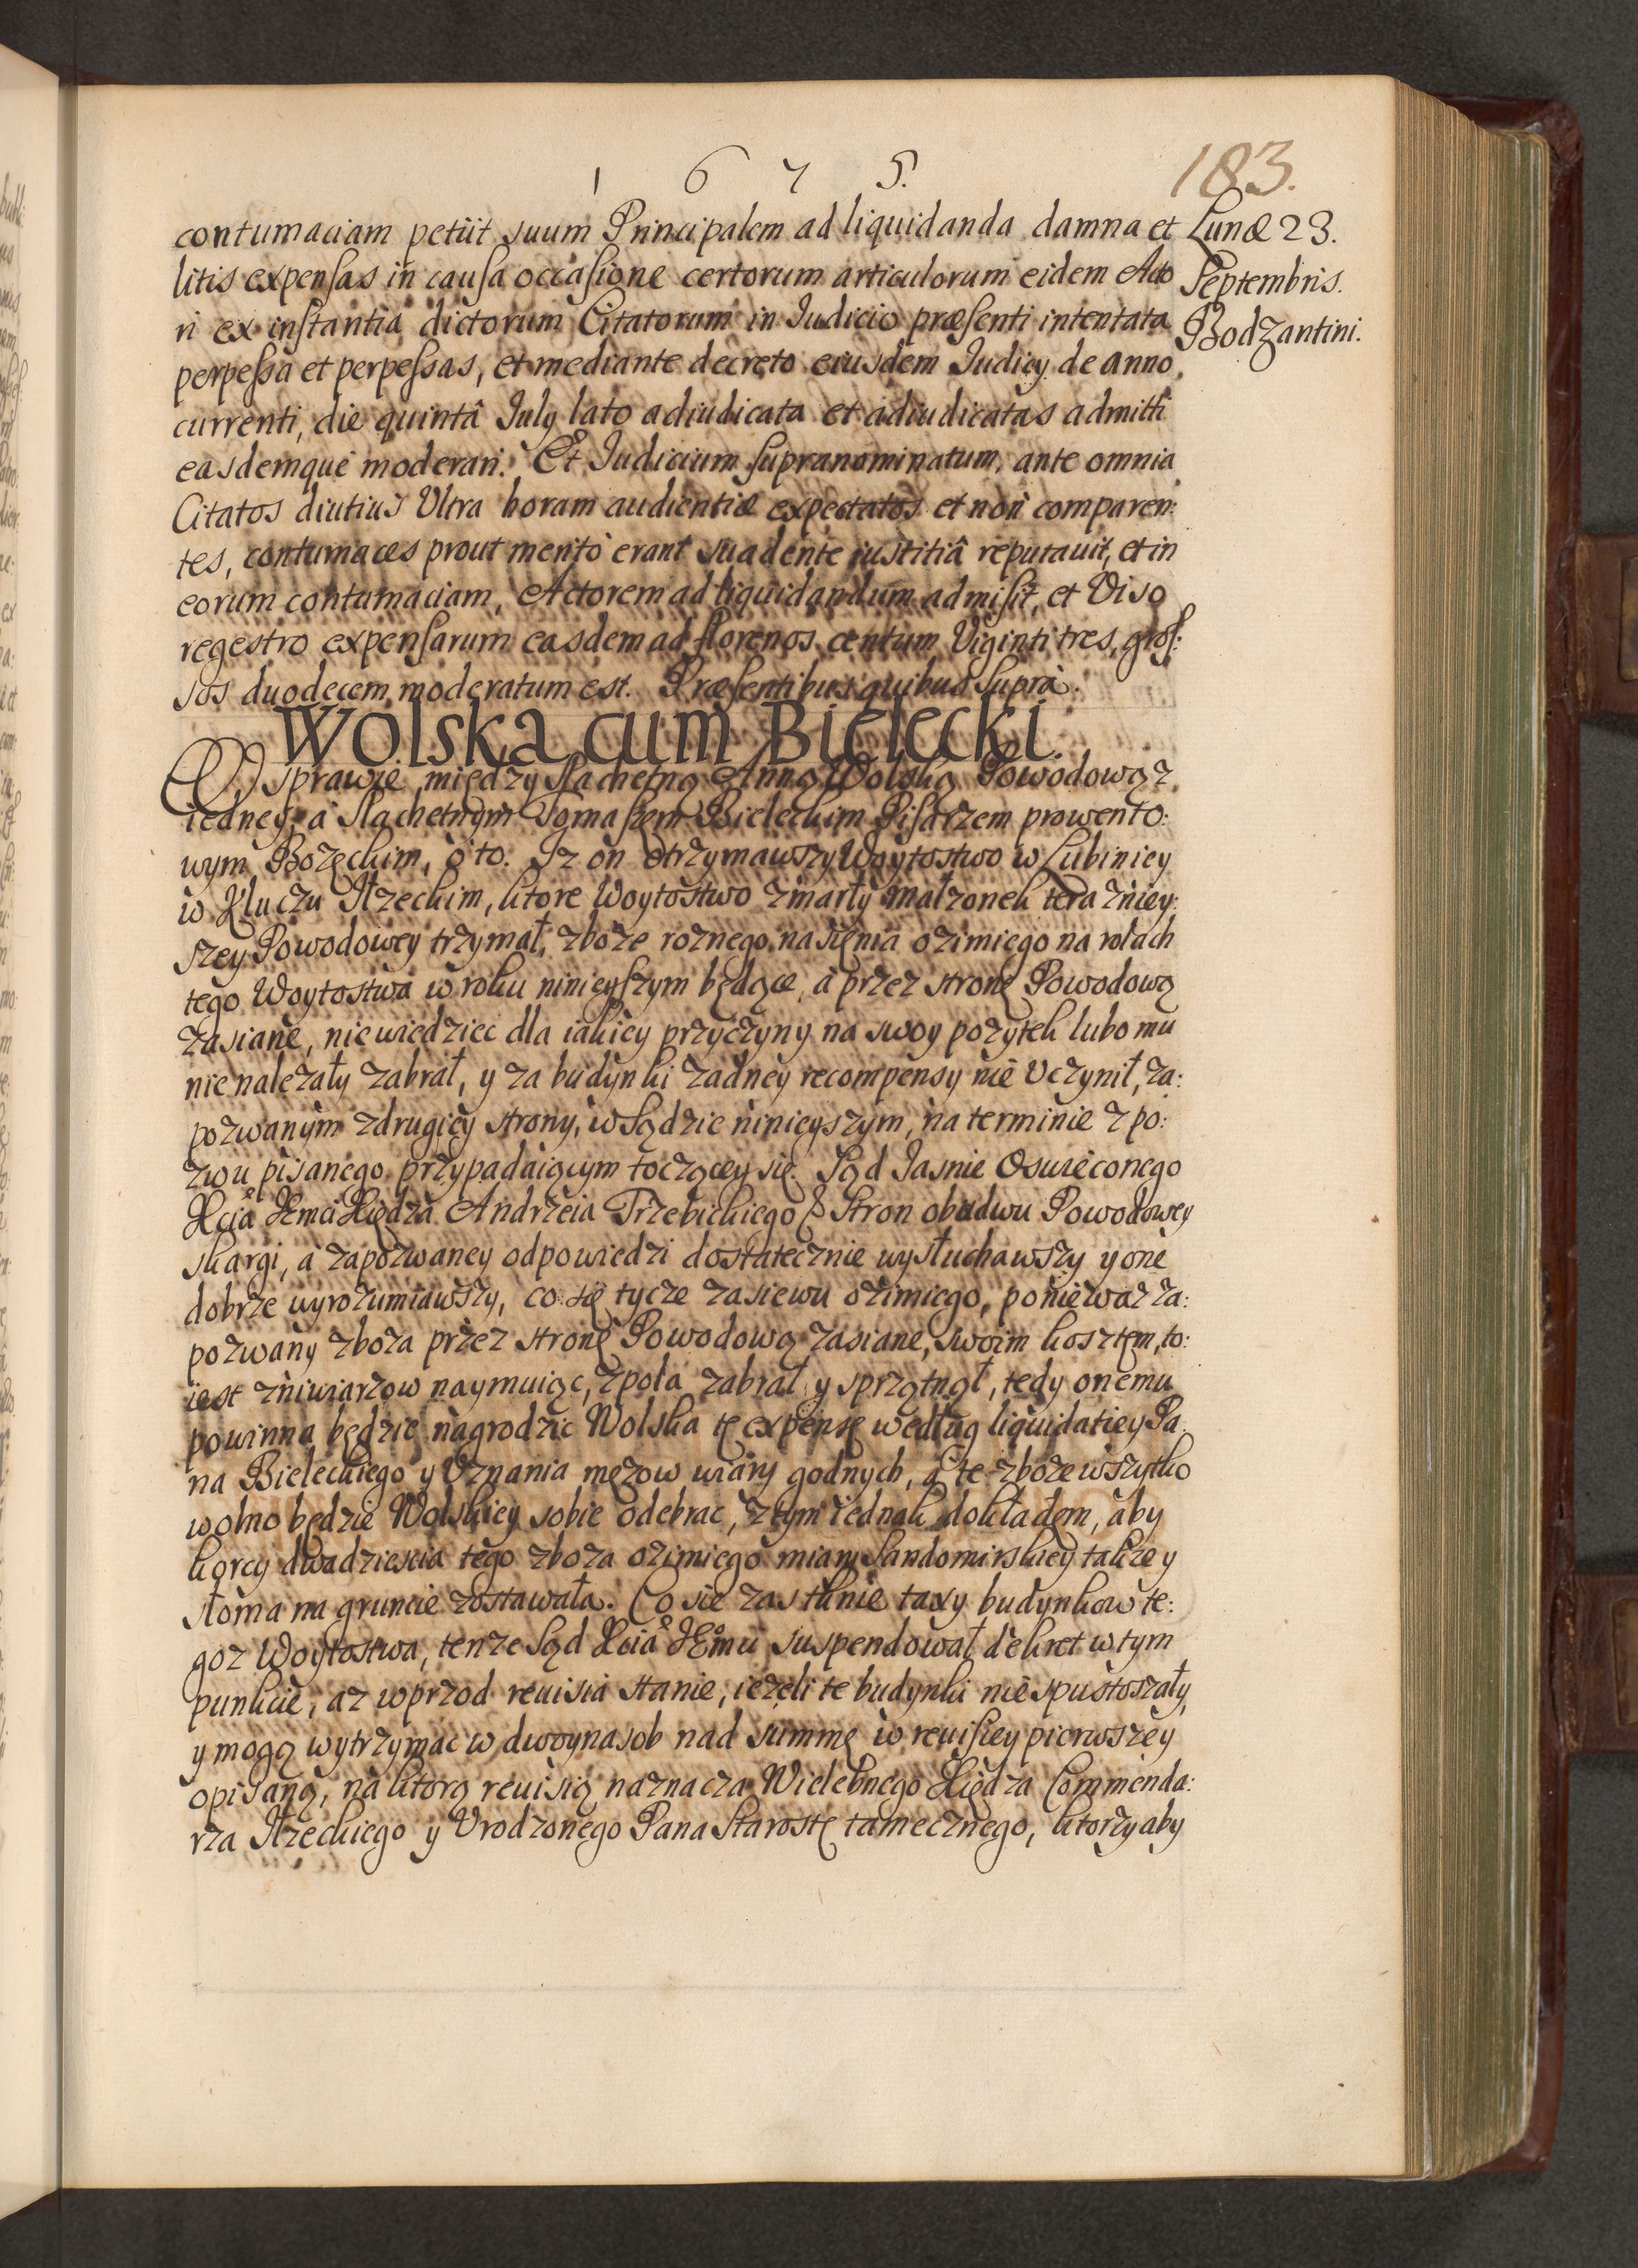 1 6 7 5.
183.
contumaciam petiit suum Principalem ad liquidanda damna et
Lunæ 23.
litis expensas in causa occasione certorum articulorum eidem Acto
Septembris.
ri ex instantia dictorum Citatorum in Judicio præsenti intentata
Bodzantini.
perpessa et perpessas, et mediante decreto eiusdem Judicy de anno
currenti, die quintâ July lato adiudicata et adiudicatas admitti
easdemque moderari. Et Judicium supranominatum, ante omnia
Citatos diutius Ultra horam audientiæ expectatos et non comparen:
tes, contumaces prout merito erant suadente iustitiâ reputauit, et in
eorum contumaciam, Actorem ad liquidandum admisit, et Viso
regestro expensarum easdem ad florenos centum Viginti tres, gros:
sos duodecem moderatum est. Præsentibus quibus supra.
Wolska cum Bielecki.
W sprawie między Slachetną Anną Wolską Powodową z
iedney, a Slachetnym Tomaszem Bieleckim Pisarzem prowento:
wym Bozęckim, o to. Iz on otrzymawszy Woytostwo w Lubiniey
w Kluczu Iłzeckim, ktore Woytostwo zmarły małzonek terazniey:
szey Powodowey trzymał, zboze roznego nasięnia ozimiego na rolach
tego Woytostwa w roku ninieyszym będące, a przez stronę Powodową
zasiane, niewiedziec dla iakiey przyczyny na swoy pozytek lubo mu
nie nalezały zabrał, y za budynki zadney recompensy nie Uczynił, za:
pozwanym z drugiey strony, w Sądzie ninieyszym, na terminie z po:
zwu pisanego przypadaiącym toczącey się. Sąd Jasnie Oswieconego
Xcia Jemci Xiędza Andrzeia Trzebickiego & Stron obudwu Powodowey
skargi, a zapozwaney odpowiedzi dostatecznie wysłuchawszy y one
dobrze wyrozumiawszy, co się tycze zasiewu ozimiego, poniewaz za:
pozwany zboza przez stronę Powodową zasiane, swoim kosztem, to:
iest zniwiarzow naymuiąc, z pola zabrał y sprzątnął, tedy onemu
powinna będzie nagrodzic Wolska tę expensę według liquidatiey Pa:
na Bieleckiego y Uznania męzow wiary godnych, a te zboze wszytko
wolno będzie Wolskiey sobie odebrac, z tym iednak dokładem, aby
korcy dwadziescia tego zboza ozimiego miary Sandomirskiey takze y
słoma na gruncie zostawała. Co sie zas tknie taxy budynkow te:
goz Woytostwa, tenze Sąd Xcia Jemci suspendował dekret w tym
punkcie, az wprzod reuisia stanie, iezeli te budynki nie spustoszały,
y mogą wytrzymac w dwoynasob nad summę w reuisiey pierwszey
opisaną, na ktorą reuisią naznacza Wielebnego Xiędza Commenda:
rza Iłzeckiego y Urodzonego Pana Starostę tamecznego, ktorzy aby